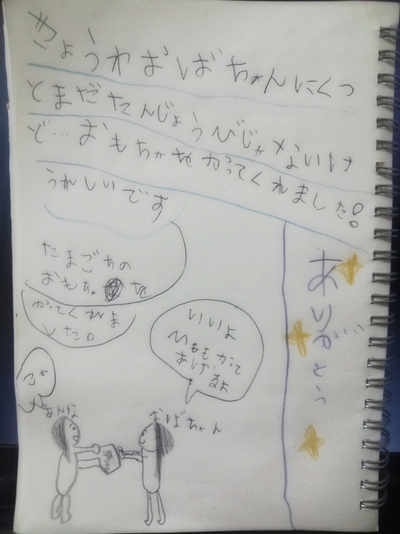 きょうわおばちゃんにくつ
とまだたんじょうびじゃないけ
ど…おもちゃをかってくれました!
うれしいです
たまごちの
おもちゃを
かってくれま
した。
いいよ
かって
あげるよ
おばちゃん
ありがとう